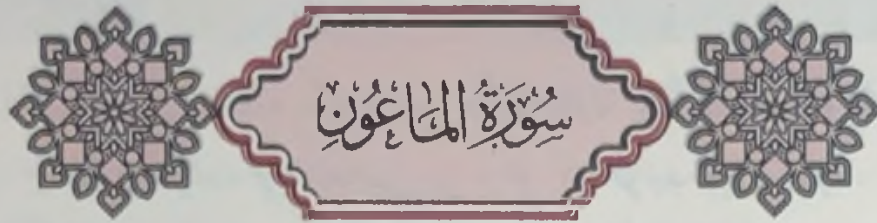 سُوْرَةُ المَاعُوْنِ